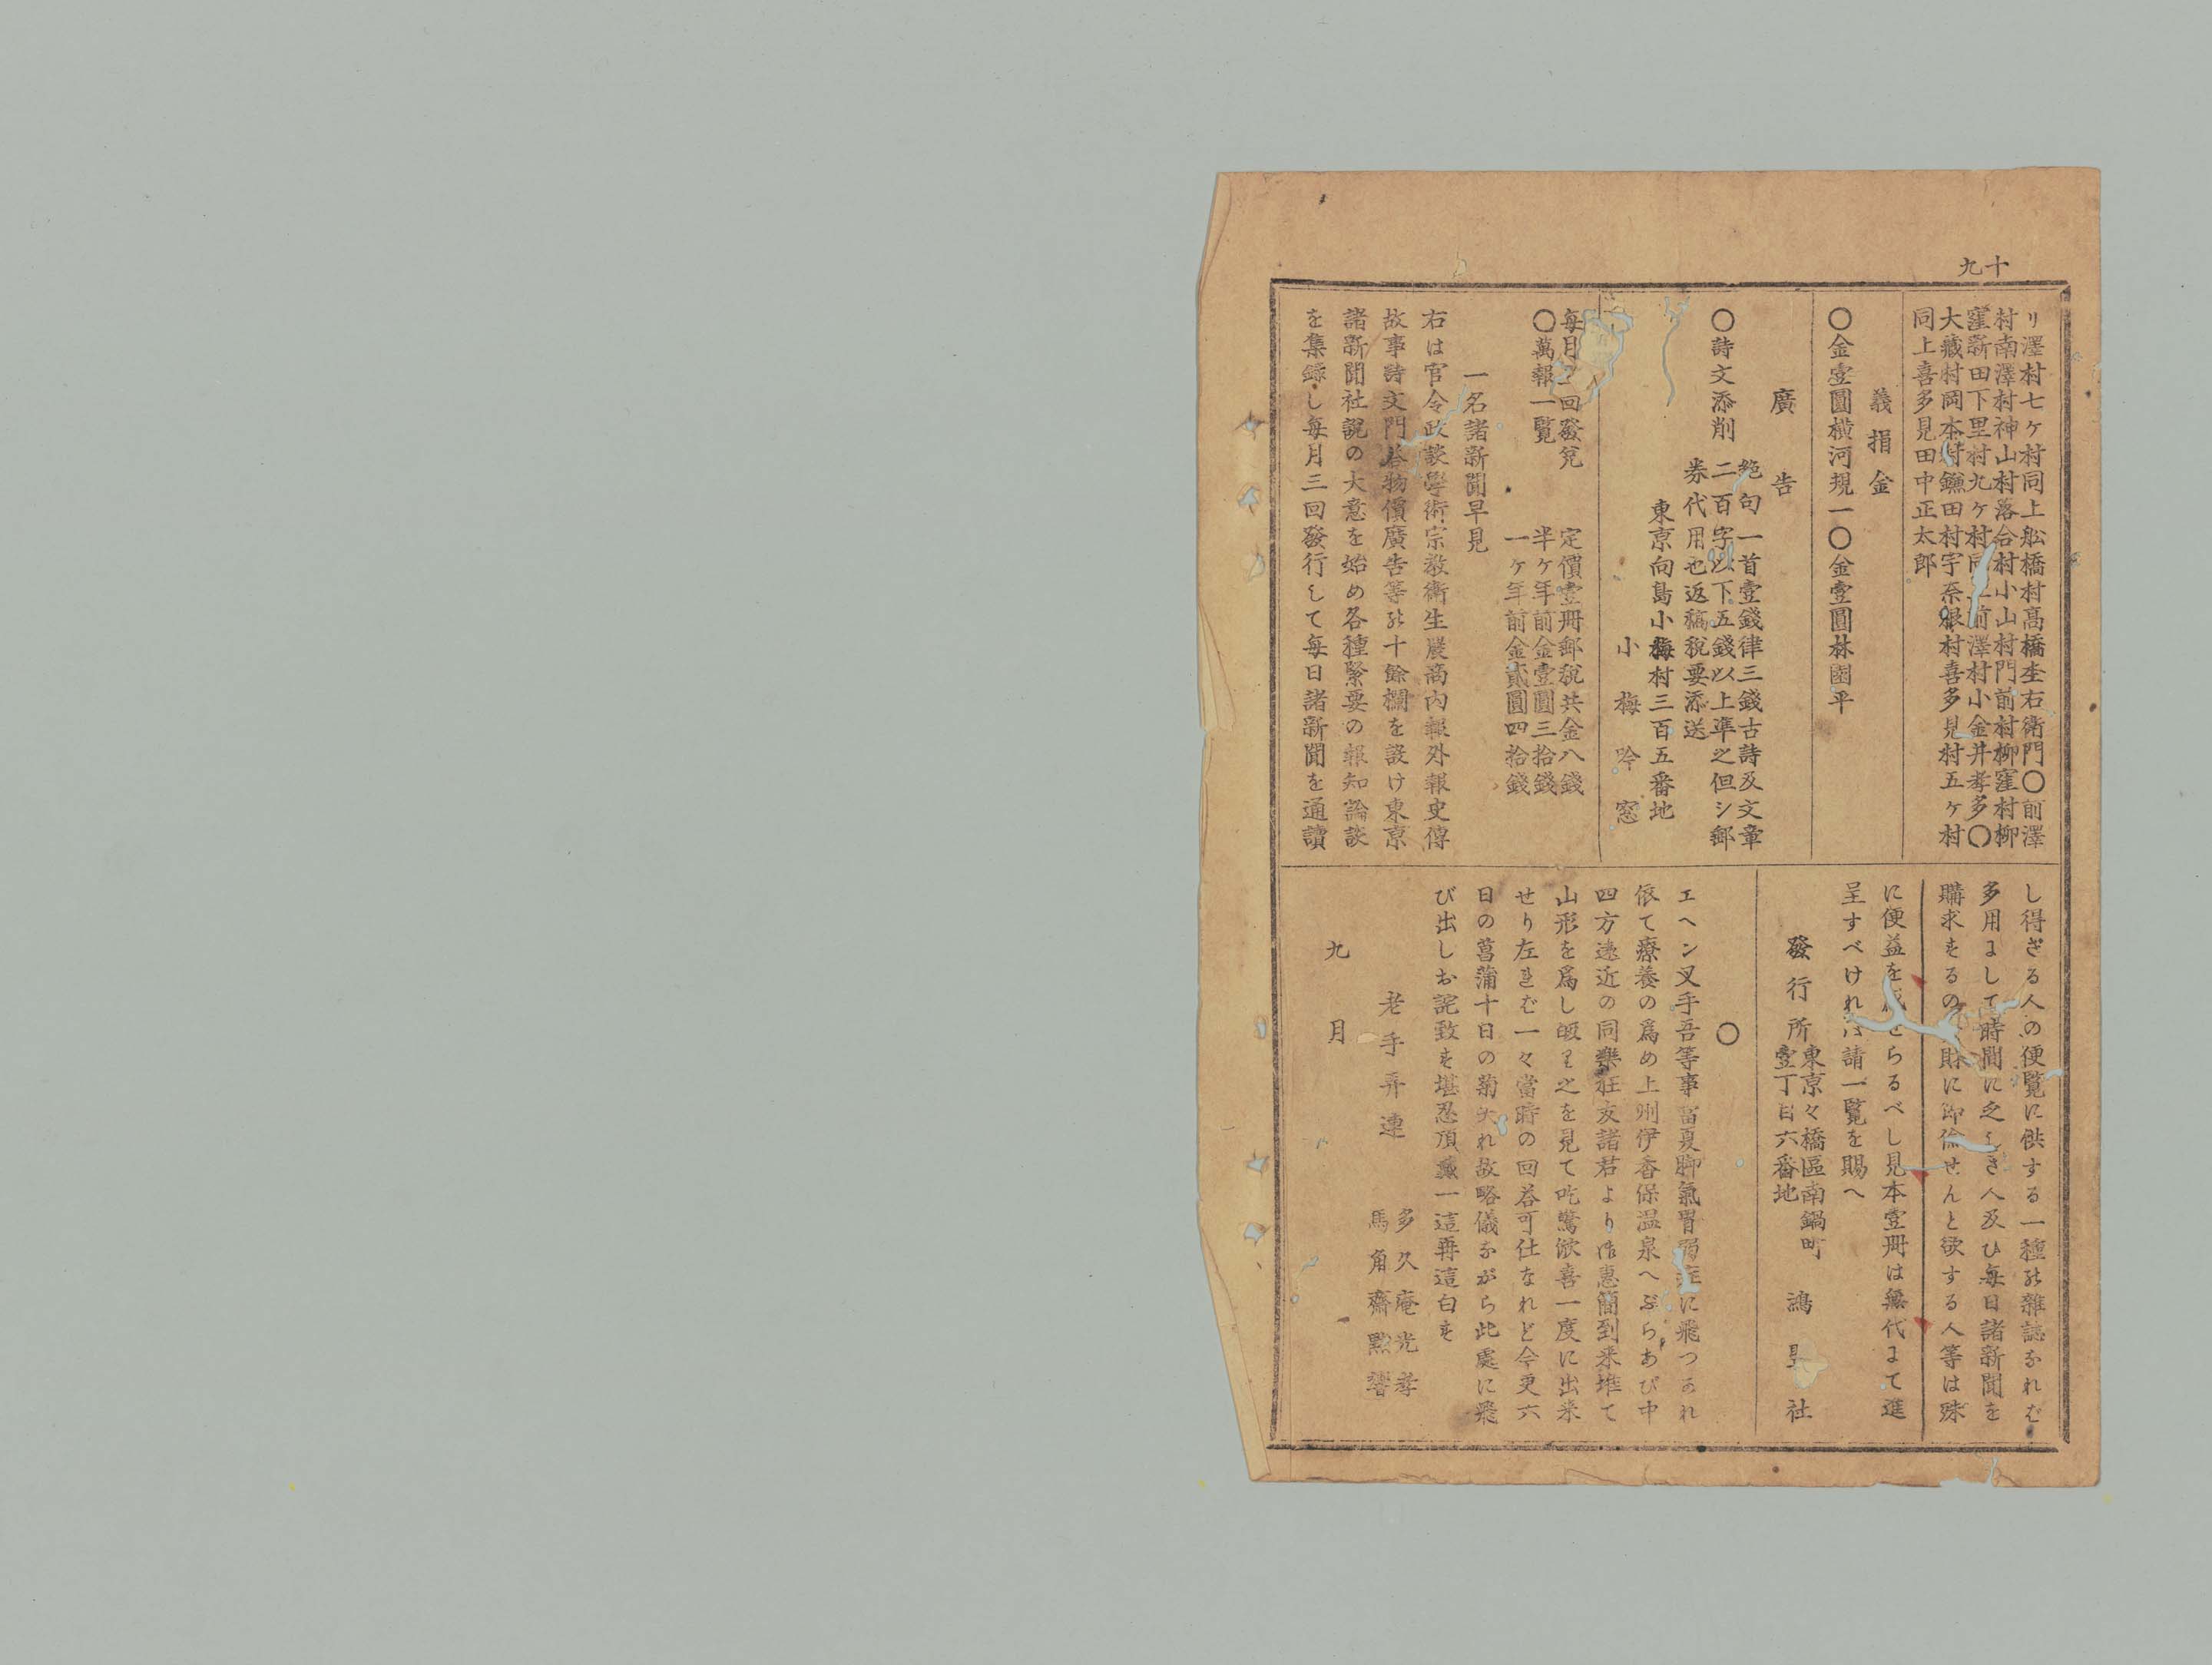 十九
リ澤村七ケ村同上舩橋村高橋杢右衛門〇前澤
村南澤村神山村落合村小山村門前村柳窪村柳
窪新田下里村九ケ村同前澤村小金井孝多〇
大藏村岡本村鎌田村宇奈根村喜多見村五ケ村
同上喜多見田中正太郎
義捐金
〇金壹圓横河規一〇金壹圓林園平
廣告
〇詩文添削
絶句一首壹錢律三錢古詩及文章
二百字以下五錢以上準之但シ郵
券代用也返稿税要添送
東京向島小梅村三百五番地
小梅吟窓
毎月回發兌
〇萬報一覧
定價壹冊郵税共金八錢
半ケ年前金壹圓三拾錢
一ケ年前金貳圓四拾錢
一名諸新聞早見
右は官令政談學術宗教衛生農商内報外報史傳
故事詩文門答物價廣告等の十餘欄を設け東京
諸新聞社説の大意を始め各種緊要の報知論談
を集録し毎月三回發行して毎日諸新聞を通讀
し得ざる人の便覧に供する一種の雜誌なれば
多用まして時間に乏しき人及ひ毎日諸新聞を
購求するの財に節儉せんと欲する人等は殊
に便益を感せらるべし見本壹冊は無代まて進
呈すべけれは請一覧を賜へ
發行所
東京々橋區南鍋町
壹丁目六番地
鴻社
〇
エヘン叉手吾等事當夏脚氣胃弱症に飛つかれ
依て療養の爲め上州伊香保温泉へぶらあび中
四方遠近の同樂狂友諸君より御惠簡到来堆て
山形を爲し皈り之を見て吃驚欣喜一度に出来
せり左れば一々當時の回答可仕なれど今更六
日の菖蒲十日の菊失れ故略儀ながら此處に飛
び出しお詫致を堪忍頂戴一這再這白を
老手弄連
多久庵光孝
馬角齋黙響
九月